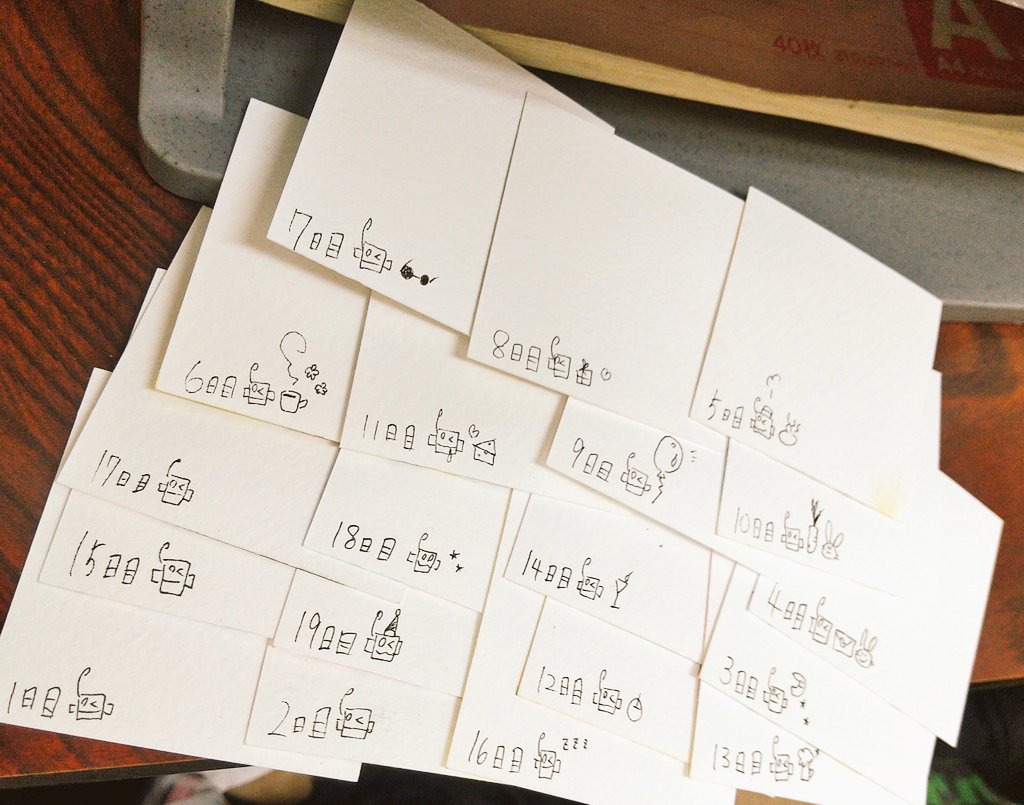 A
40枚
A4
7日目
8日目
6日目
5日目
11日目
9日目
17日目
10日目
18日目
15日目
14日目
4日目
19日目
12日目
3日目
1日目
2日目
16日目 zzz
13日目